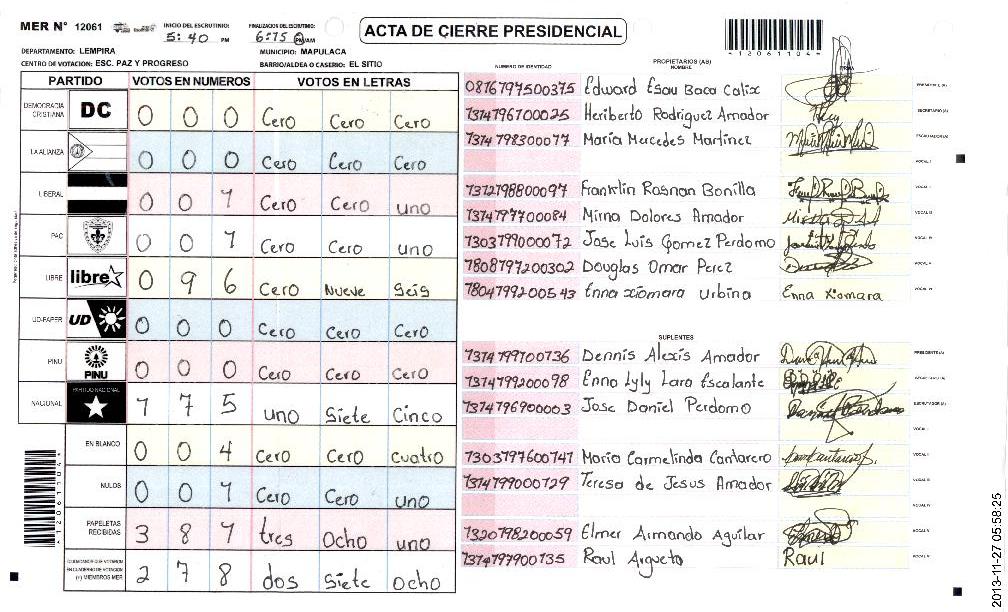 MER N° 12061
INICIO DEL ESCRUTINIO:
5:40 PM
FINALIZACION DEL ESCRUTINIO:
6:15 PM/AM
ACTA DE CIERRE PRESIDENCIAL
*12061104*
DEPARTAMENTO: LEMPIRA
MUNICIPIO: MAPULACA
CENTRO DE VOTACION: ESC. PAZ Y PROGRESO
BARRIO/ALDEA O CASERIO: EL SITIO
PARTIDO VOTOS EN NUMEROS VOTOS EN LETRAS
DEMOCRACIA CRISTIANA DC 0 0 0 Cero Cero Cero
LA ALIANZA 0 0 0 Cero Cero Cero
LIBERAL 0 0 1 Cero Cero uno
PAC 0 0 1 Cero Cero uno
LIBRE libre 0 9 6 Cero Nueve Seis
UD-FAPER UD 0 0 0 Cero Cero Cero
PINU PINU 0 0 0 Cero Cero Cero
NACIONAL PARTIDO NACIONAL 1 7 5 uno Siete Cinco
EN BLANCO 0 0 4 Cero Cero cuatro
NULOS 0 0 1 Cero Cero uno
PAPELETAS RECIBIDAS 3 8 1 tres Ocho uno
CIUDADANOS QUE VOTARON EN CUADERNO DE VOTACION (+) MIEMBROS MER 2 7 8 dos Siete Ocho
*12061104*
NUMERO DE IDENTIDAD
PROPIETARIOS (AS)
NOMBRE
FIRMA
0816197500375 Edward Esau Baca Calix PRESIDENTE (A)
1314196700025 Heriberto Rodriguez Amador SECRETARIO (A)
1314198300077 Maria Mercedes Martinez ESCRUTADOR (A)
VOCAL I
1312198800097 Franklin Rosnan Bonilla VOCAL II
1314197700084 Mirna Dolores Amador VOCAL III
1303199000072 Jose Luis Gomez Perdomo VOCAL IV
1808197200302 Douglas Omar Perez VOCAL V
1804199200543 Enna xiomara Urbina Enna Xiomara VOCAL VI
SUPLENTES
1314199100136 Dennis Alexis Amador PRESIDENTE (A)
1314199200098 Enna Lyly Lara Escalante SECRETARIO (A)
1314196900003 Jose Daniel Perdomo ESCRUTADOR (A)
VOCAL I
1303197600141 Maria Carmelinda Cantarero VOCAL II
1314199000129 Teresa de Jesus Amador VOCAL III
1320198200059 Elmer Armando Aguilar VOCAL V
1314197900135 Raul Argueta Raul VOCAL VI
2013-11-27 05:58:25